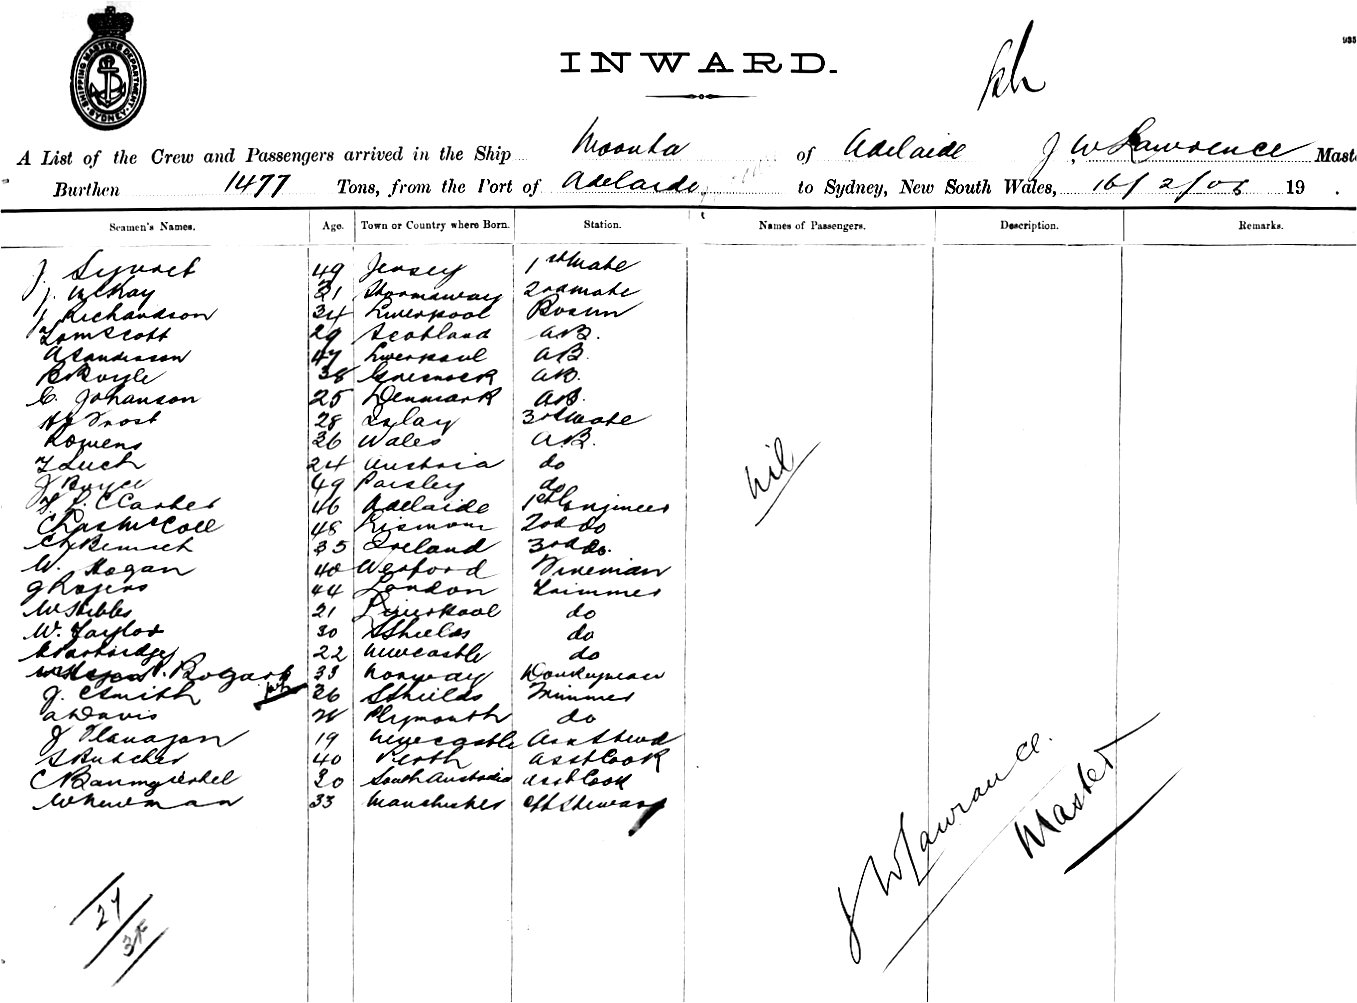 SHIPPING MASTERS DEPARTMENT SYDNEY
935
INWARD.
A List of the Crew and Passengers arrived in the Ship Moonta of Adelaide J W Lawrence Maste
Burthen 1477 Tons, from the Port of Adelaide, to Sydney, New South Wales, 16/2/08 19 .
Seamen's Names. Age. Town or Country where Born. Station. Names of Passengers. Description. Remarks.
J. Syvret 49 Jersey 1st Mate
J. McKay 21 Stornaway 2nd Mate
J Richardson 34 Liverpool Bosun
Tom Scott 29 Scotland AB.
A Sanderson 47 Liverpool AB.
R Boyle 38 Greenock AB.
C. Johanson 25 Denmark AB.
Frost 28 Islay 3rd Mate
R Owens 36 Wales AB.
24 Austria do
J Boyce 49 Paisley do
46 Adelaide 1st Engineer
Chas McColl 48 Lismore 2nd do
35 Ireland 3rd do.
W. Hogan 40 Wexford Fireman
G Rogers 44 London Trimmer
W Stibbs 21 Liverpool do
W. Taylor 30 S Shields do
Partridge 22 Newcastle do
33 Norway Donkeyman
J. C Smith 26 S Shields Trimmer
A Davis Plymouth do
J Flanagan 19 Newcastle Ass Stewd
S Butcher 40 Perth Asst Cook
C 30 South Australia Asst Cook
W Newman 33 Manchester Steward
nil
J W Lawrance.
Master
27